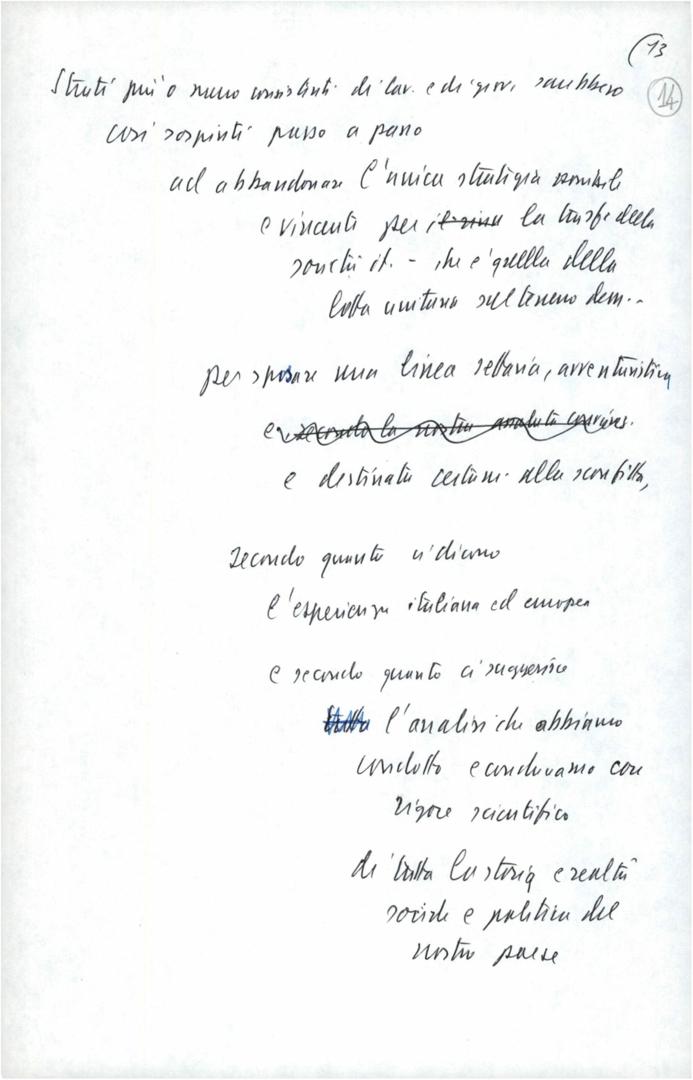 (13
14
Strati più o meno consistenti di lav. e di giov. sarebbero
così sospinti passo a passo
ad abbandonare l'unica strategia possibile
e vincente per la trasf. della
società it. - che è quella della
lotta unitaria sul terreno dem. -
per sposare una linea settaria, avventuristica
e secondo la nostra analisi
e destinata certam. alla sconfitta,
secondo quanto ci dicono
l'esperienza italiana ed europea
e secondo quanto ci suggerisce
tutta l'analisi che abbiamo
condotto e conduciamo con
rigore scientifico
di tutta la storia e realtà
sociale e politica del
nostro paese